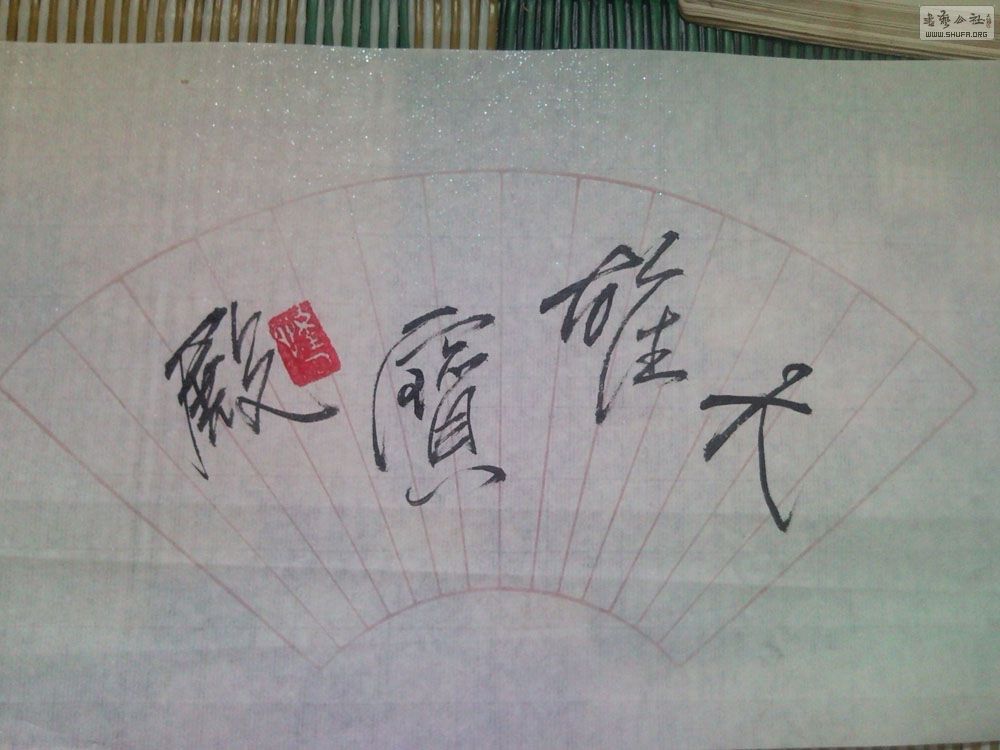 大雄寶殿
书艺公社
WWW.SHUFA.ORG